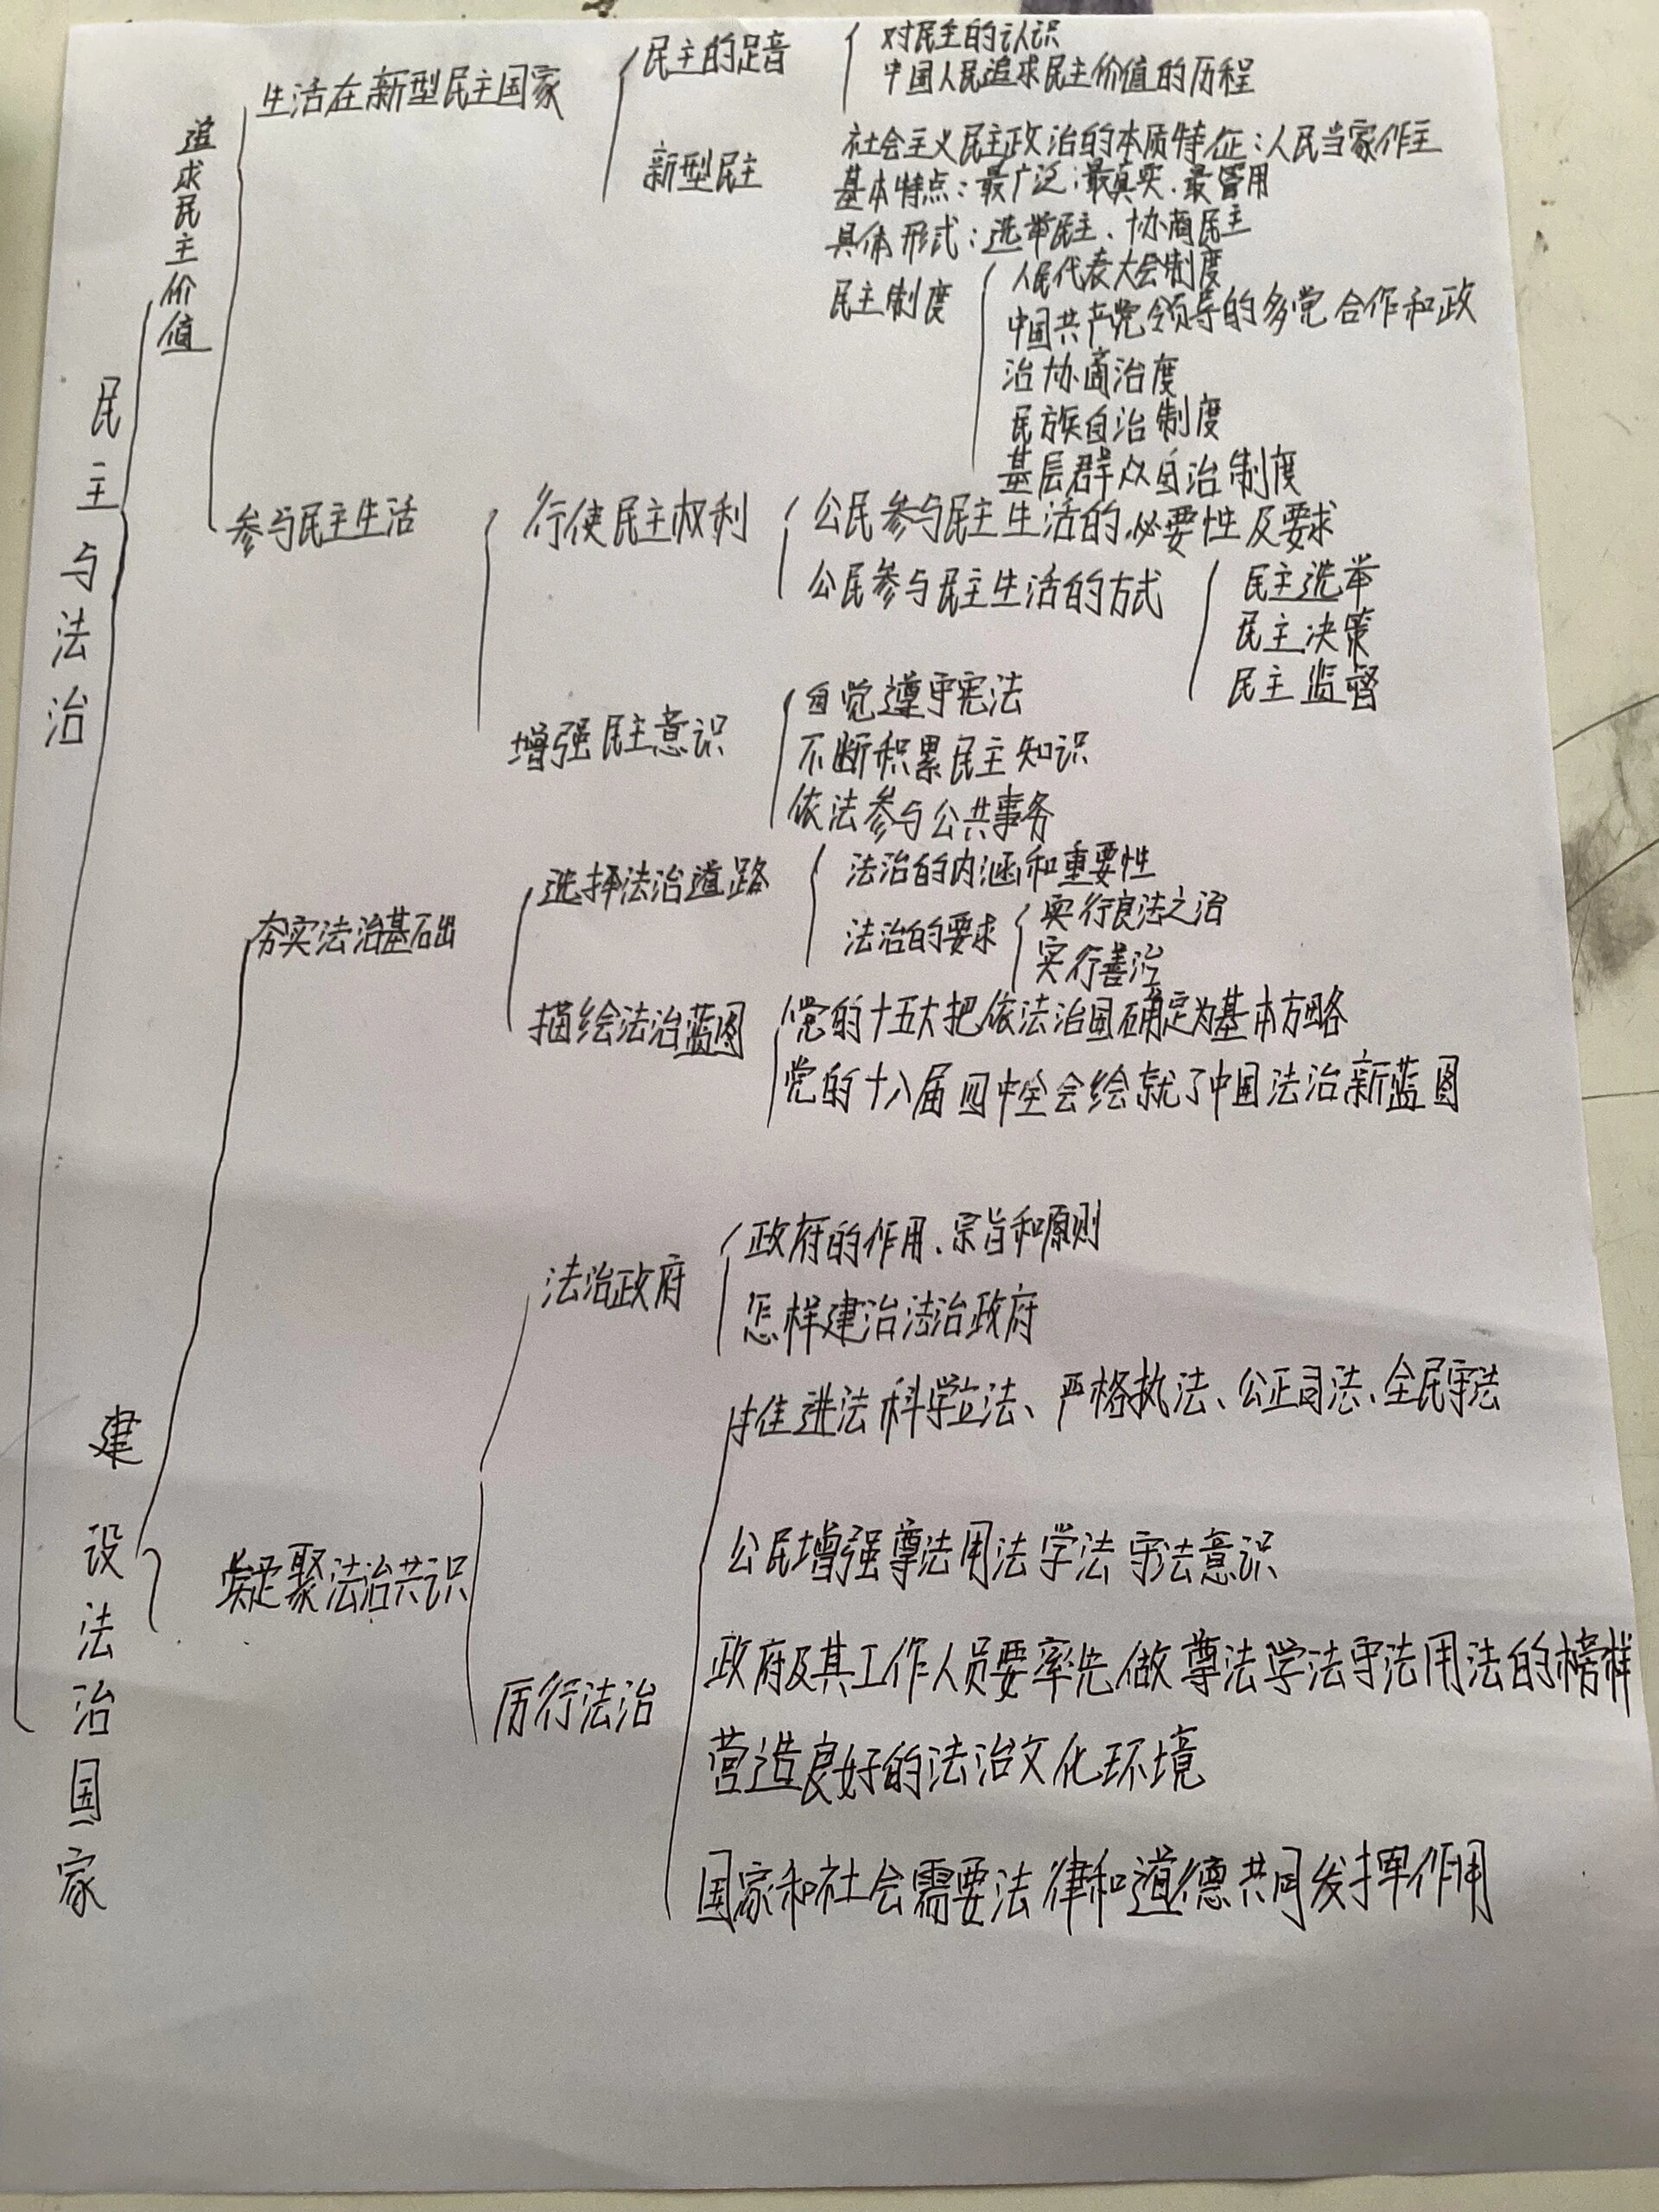 民主与法治
追求民主价值
生活在新型民主国家
民主的足音
对民主的认识
中国人民追求民主价值的历程
新型民主
社会主义民主政治的本质特征：人民当家作主
基本特点：最广泛、最真实、最管用
具体形式：选举民主、协商民主
民主制度
人民代表大会制度
中国共产党领导的多党合作和政
治协商治度
民族自治制度
基层群众自治制度
参与民主生活
行使民主权利
公民参与民主生活的必要性及要求
公民参与民主生活的方式
民主选举
民主决策
民主监督
增强民主意识
自觉遵守宪法
不断积累民主知识
依法参与公共事务
建设法治国家
夯实法治基础
选择法治道路
法治的内涵和重要性
法治的要求
实行良法之治
实行善治
描绘法治蓝图
党的十五大把依法治国确定为基本方略
党的十八届四中全会绘就了中国法治新蓝图
凝聚法治共识
法治政府
政府的作用、宗旨和原则
怎样建治法治政府
厉行法治
推进法科学立法、严格执法、公正司法、全民守法
公民增强尊法用法学法守法意识
政府及其工作人员要率先做尊法学法守法用法的榜样
营造良好的法治文化环境
国家和社会需要法律和道德共同发挥作用